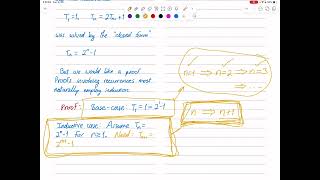 T₁=1, Tₙ = 2Tₙ₋₁+1
was solved by the "closed form"
Tₙ = 2ⁿ-1
But we would like a proof.
Proofs involving recurrences most
naturally employ induction.
Proof: Base-case: T₁=1=2¹-1
Inductive case: Assume Tₙ =
2ⁿ-1 for n≥1. Need: Tₙ₊₁ =
2ⁿ⁺¹-1
n=1 ⇒ n=2 ⇒ n=3
⇒ ...
n ⇒ n+1